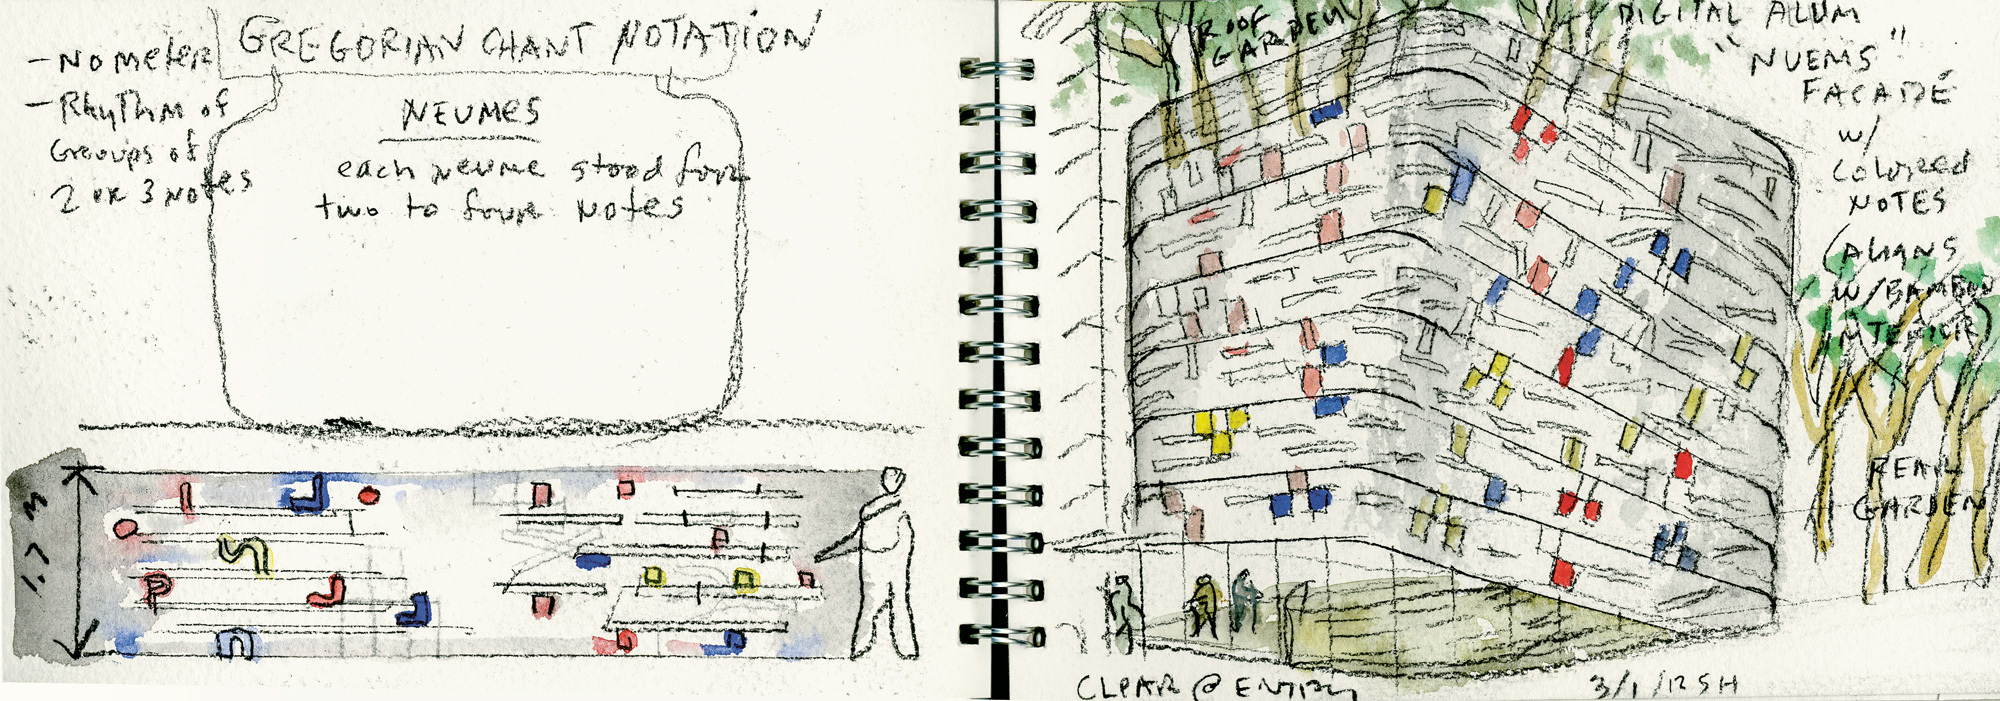 GREGORIAN CHANT NOTATION
- NO METER
- Rhythm of
Groups of
2 or 3 NOTES
NEUMES
each neume stood for
two to four notes
1.7 M
ROOF
GARDEN
DIGITAL ALUM
"NUEMS"
FACADE
w/
COLORED
NOTES
(ALIGNS
W/BAMBOO
INTERIOR)
REAR
GARDEN
CLEAR @ ENTRY
3/1/12 SH